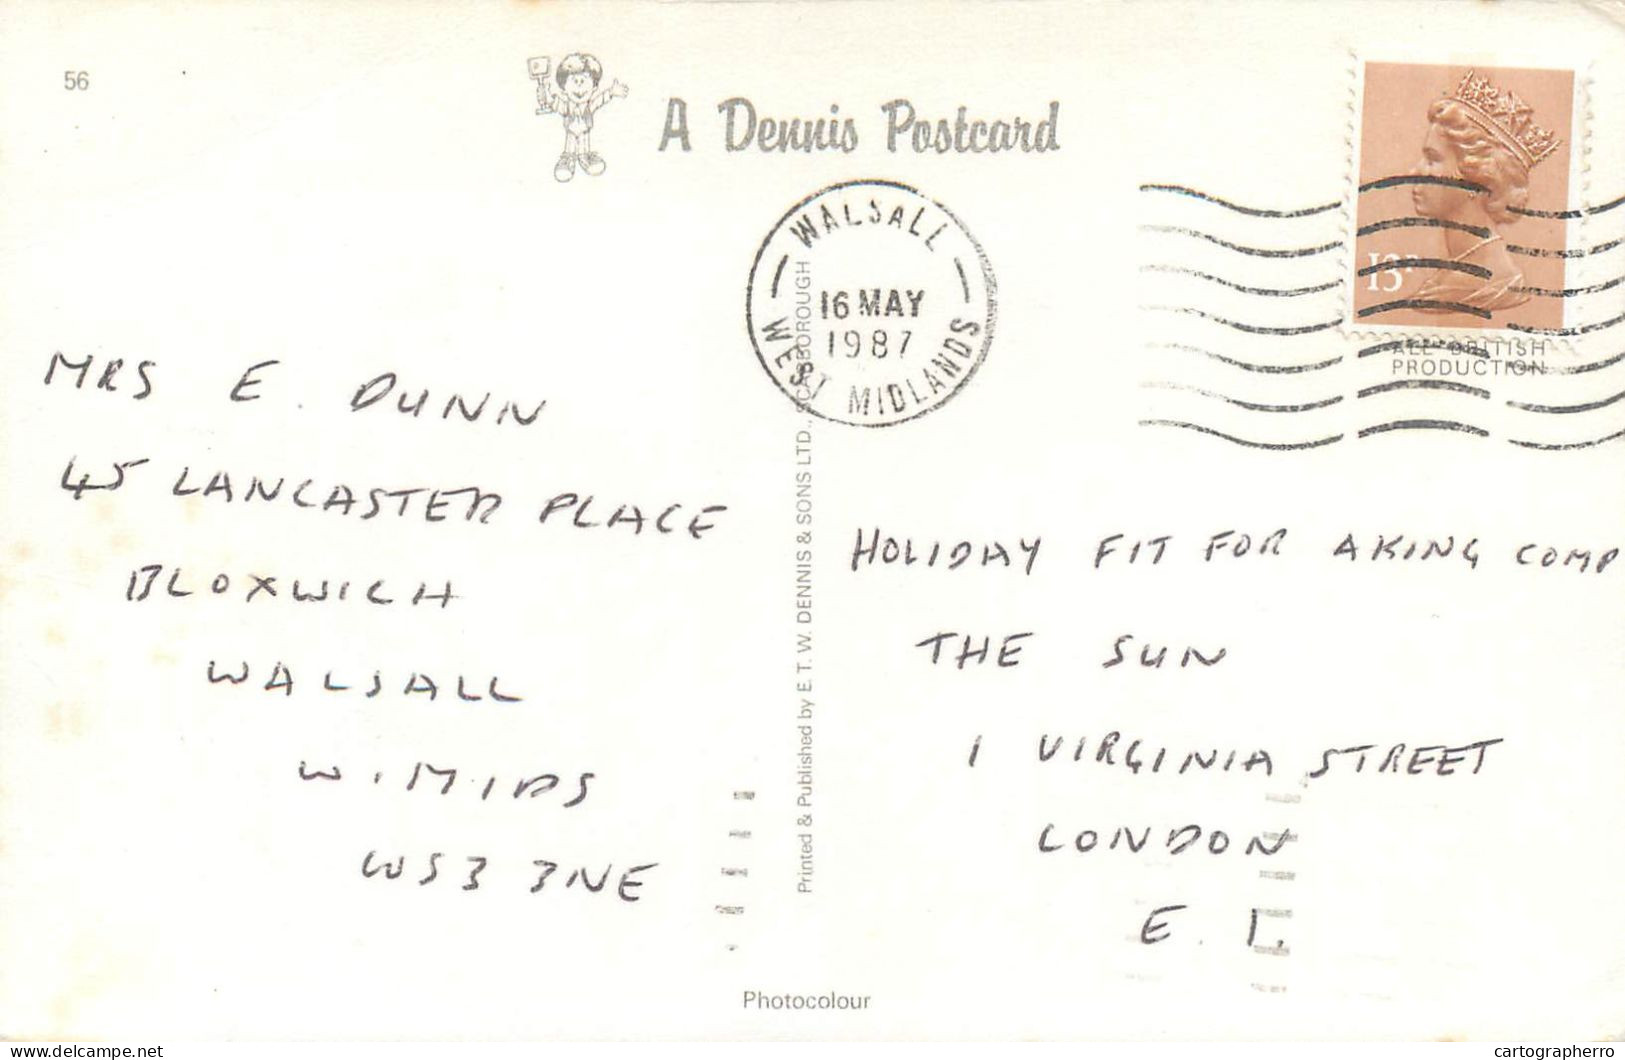 56
A Dennis Postcard
WALSALL
16 MAY
1987
WEST MIDLANDS
13P
ALL BRITISH
PRODUCTION
MRS E. DUNN
45 LANCASTER PLACE
BLOXWICH
WALSALL
W. MIDS
WS3 3NE
Printed & Published by E. T. W. DENNIS & SONS LTD., SCARBOROUGH
HOLIDAY FIT FOR A KING COMP
THE SUN
1 VIRGINIA STREET
LONDON
E. 1.
Photocolour
delcampe.net
cartographerro